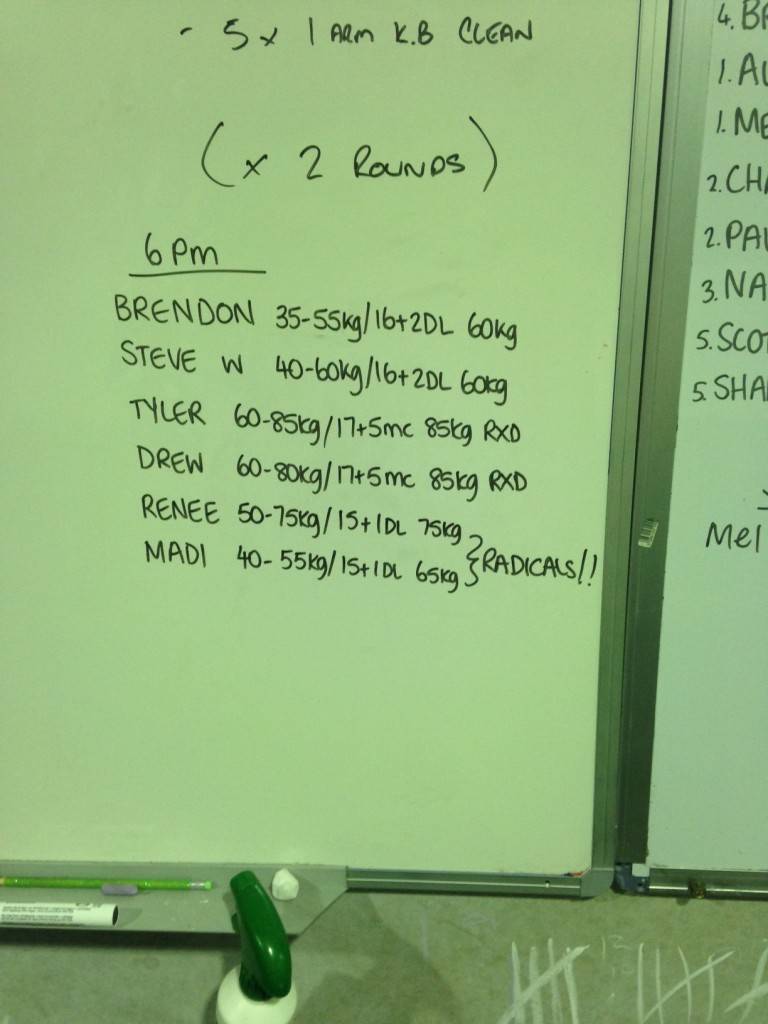 - 5 x 1 ARM K.B CLEAN
(x 2 ROUNDS)
6 Pm
BRENDON 35-55kg/16+2DL 60kg
STEVE W 40-60kg/16+2DL 60kg
TYLER 60-85kg/17+5mc 85kg RXD
DREW 60-80kg/17+5mc 85kg RXD
RENEE 50-75kg/15+1DL 75kg
MADI 40-55kg/15+1DL 65kg } RADICALS!!
4. BR
1. AL
1. ME
2. CHA
2. PAU
3. NA
5. SCOT
5. SHA
Mel